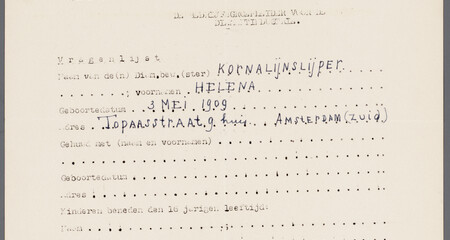 Vragenlijst
Naam van de(n) Diam.bew.(ster) KORNALIJNSLIJPER
; voornamen HELENA
Geboortedatum 3 MEI 1909
adres Topaasstraat 9 huis AMSTERDAM (ZUID)
Gehuwd met (naam en voornamen)
Geboortedatum
adres
Kinderen beneden den 16 jarigen leeftijd:
Naam